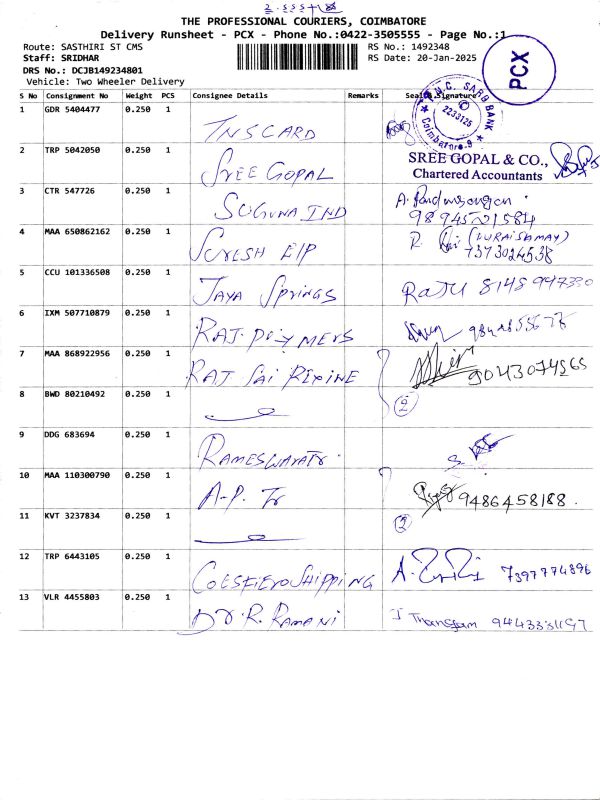 THE PROFESSIONAL COURIERS, COIMBATORE
Delivery Runsheet - PCX - Phone No.:0422-3505555 - Page No.:1
Route: SASTHIRI ST CMS
RS No.: 1492348
Staff: SRIDHAR
RS Date: 20-Jan-2025
DRS No.: DCJB149234801
Vehicle: Two Wheeler Delivery
PCX
S No Consignment No Weight PCS Consignee Details Remarks Seal & Signature
1 GDR 5404477 0.250 1 TNSCARD
2 TRP 5042050 0.250 1 SREE GOPAL
SREE GOPAL & CO.,
Chartered Accountants
3 CTR 547726 0.250 1 SUGUNA IND
4 MAA 650862162 0.250 1 SURESH E/P
5 CCU 101336508 0.250 1 JAYA SPRINGS RAJU 8148 947330
6 IXM 507710879 0.250 1 RAJ POLYMERS
7 MAA 868922956 0.250 1 RAJ SAI REXINE 9043074965
8 BWD 80210492 0.250 1 2
9 DDG 683694 0.250 1 RAMESWARA Tr.
10 MAA 110300790 0.250 1 A-P. Tr 9486458188.
11 KVT 3237834 0.250 1 2
12 TRP 6443105 0.250 1 SHIPPING 7397774896
13 VLR 4455803 0.250 1 DR. R. RAMANI